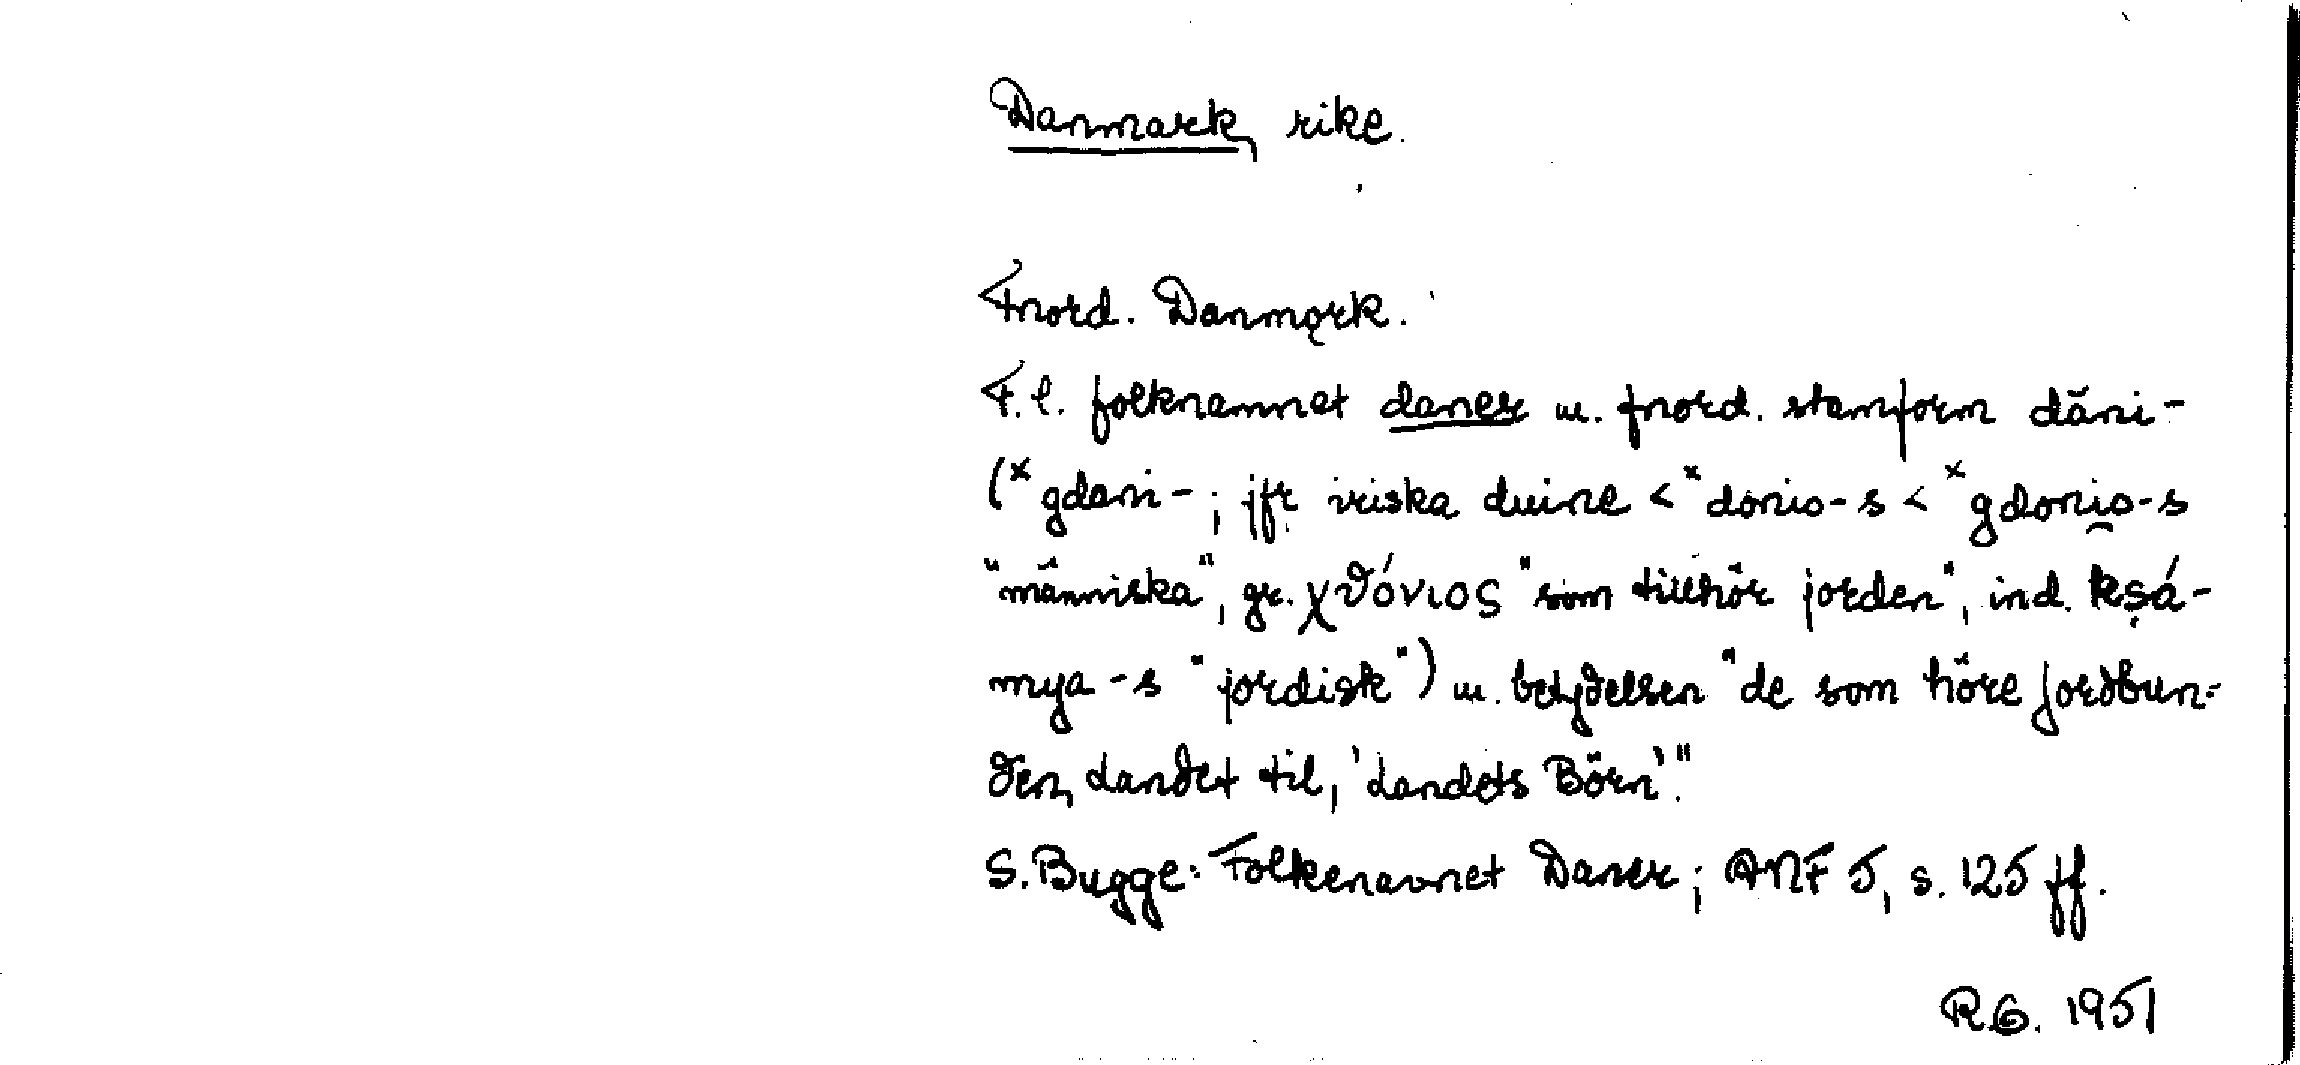 Danmark, rike.
Fnord. Danmǫrk.
F.l. folknamnet daner m. fnord. stamform dăni-
(ˣgdani-; jfr iriska duine < ˣdonio-s < ˣgdoni̯o-s
"människa", gr. χϑόνιος "som tillhör jorden", ind. kṣá-
mya-s "jordisk") m. betydelsen "de som höre Jordbun-
den, Landet til, 'Landets Börn'."
S. Bugge: Folkenavnet Daner; ANF 5, s. 125 ff.
R.G. 1951